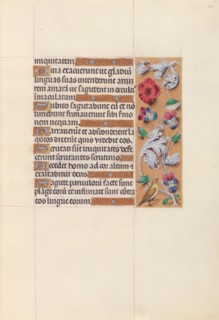 iniquitatem.
Quia exacuerunt ut gladiu
linguas suas intenderunt arcu
rem amara ut sagittent in occultis
immaculatum.
Subito sagittabunt eu et no
timebunt firmaverunt sibi sermo
nem nequam.
Narraverunt ut absconderent la
queos dixerunt quis videbit eos.
Scrutati sunt iniquitates defe
cerunt scrutantes scrutinio.
Accedet homo ad cor altum et
exaltabitur deus.
Sagitte parvulorum facte sunt
plage eorum et infirmate sunt contra
eos lingue eorum.